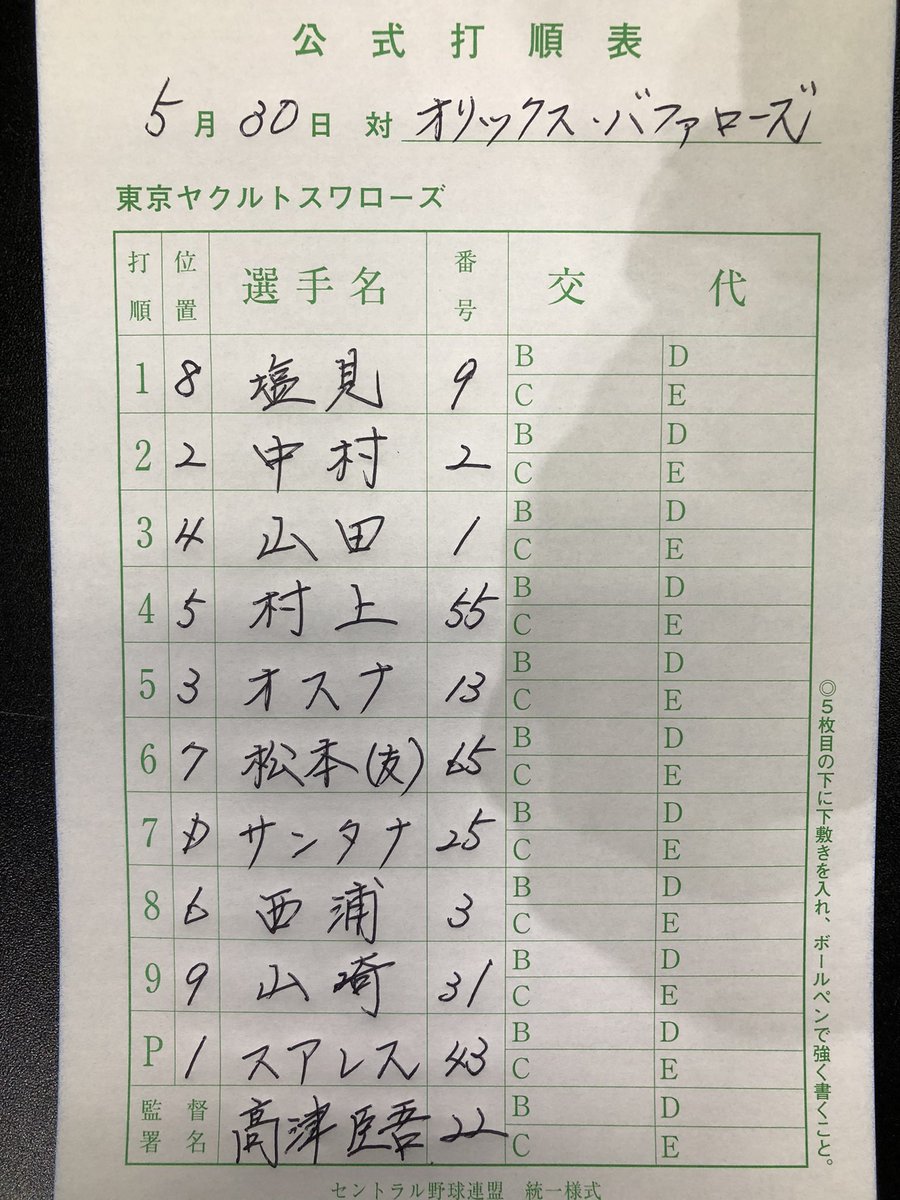 公式打順表
5月30日 対 オリックス・バファローズ
東京ヤクルトスワローズ
打順 位置 選手名 番号 交代
1 8 塩見 9 B D
C E
2 2 中村 2 B D
C E
3 4 山田 1 B D
C E
4 5 村上 55 B D
C E
5 3 オスナ 13 B D
C E
6 7 松本(友) 65 B D
C E
7 D サンタナ 25 B D
C E
8 6 西浦 3 B D
C E
9 9 山崎 31 B D
C E
P 1 スアレス 43 B D
C E
監督署名 高津臣吾 22 B D
C E
◎5枚目の下に下敷きを入れ、ボールペンで強く書くこと。
セントラル野球連盟 統一様式